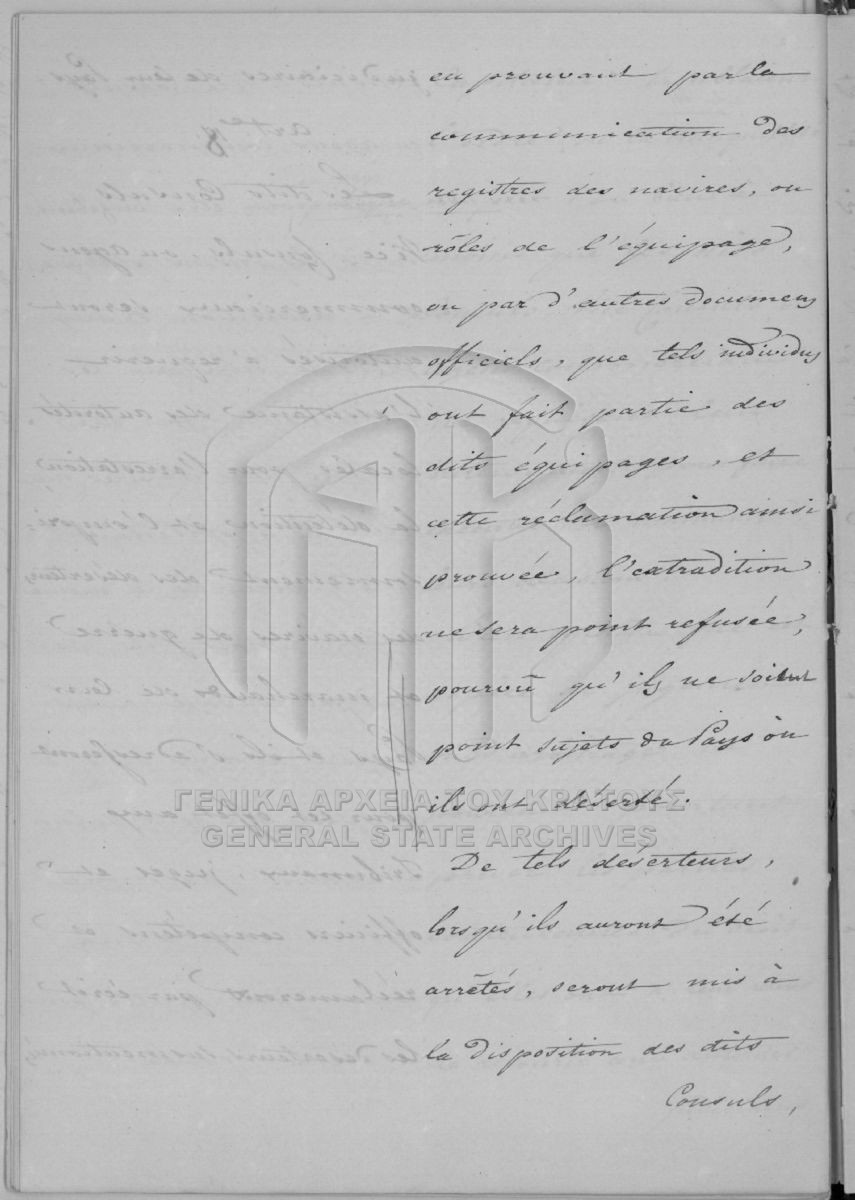 en prouvant par la
communication des
registres des navires, ou
rôles de l'équipage,
ou par d'autres documens
officiels, que tels individus
ont fait partie des
dits équipages, et
cette réclamation ainsi
prouvée, l'extradition
ne sera point refusée,
pourvû qu'ils ne soient
point sujets du Pays òu
ils ont déserté.
ΓΕΝΙΚΑ ΑΡΧΕΙΑ ΤΟΥ ΚΡΑΤΟΥΣ
GENERAL STATE ARCHIVES
De tels déserteurs,
lorsqu'ils auront été
arrêtés, seront mis à
la disposition des dits
Consuls,